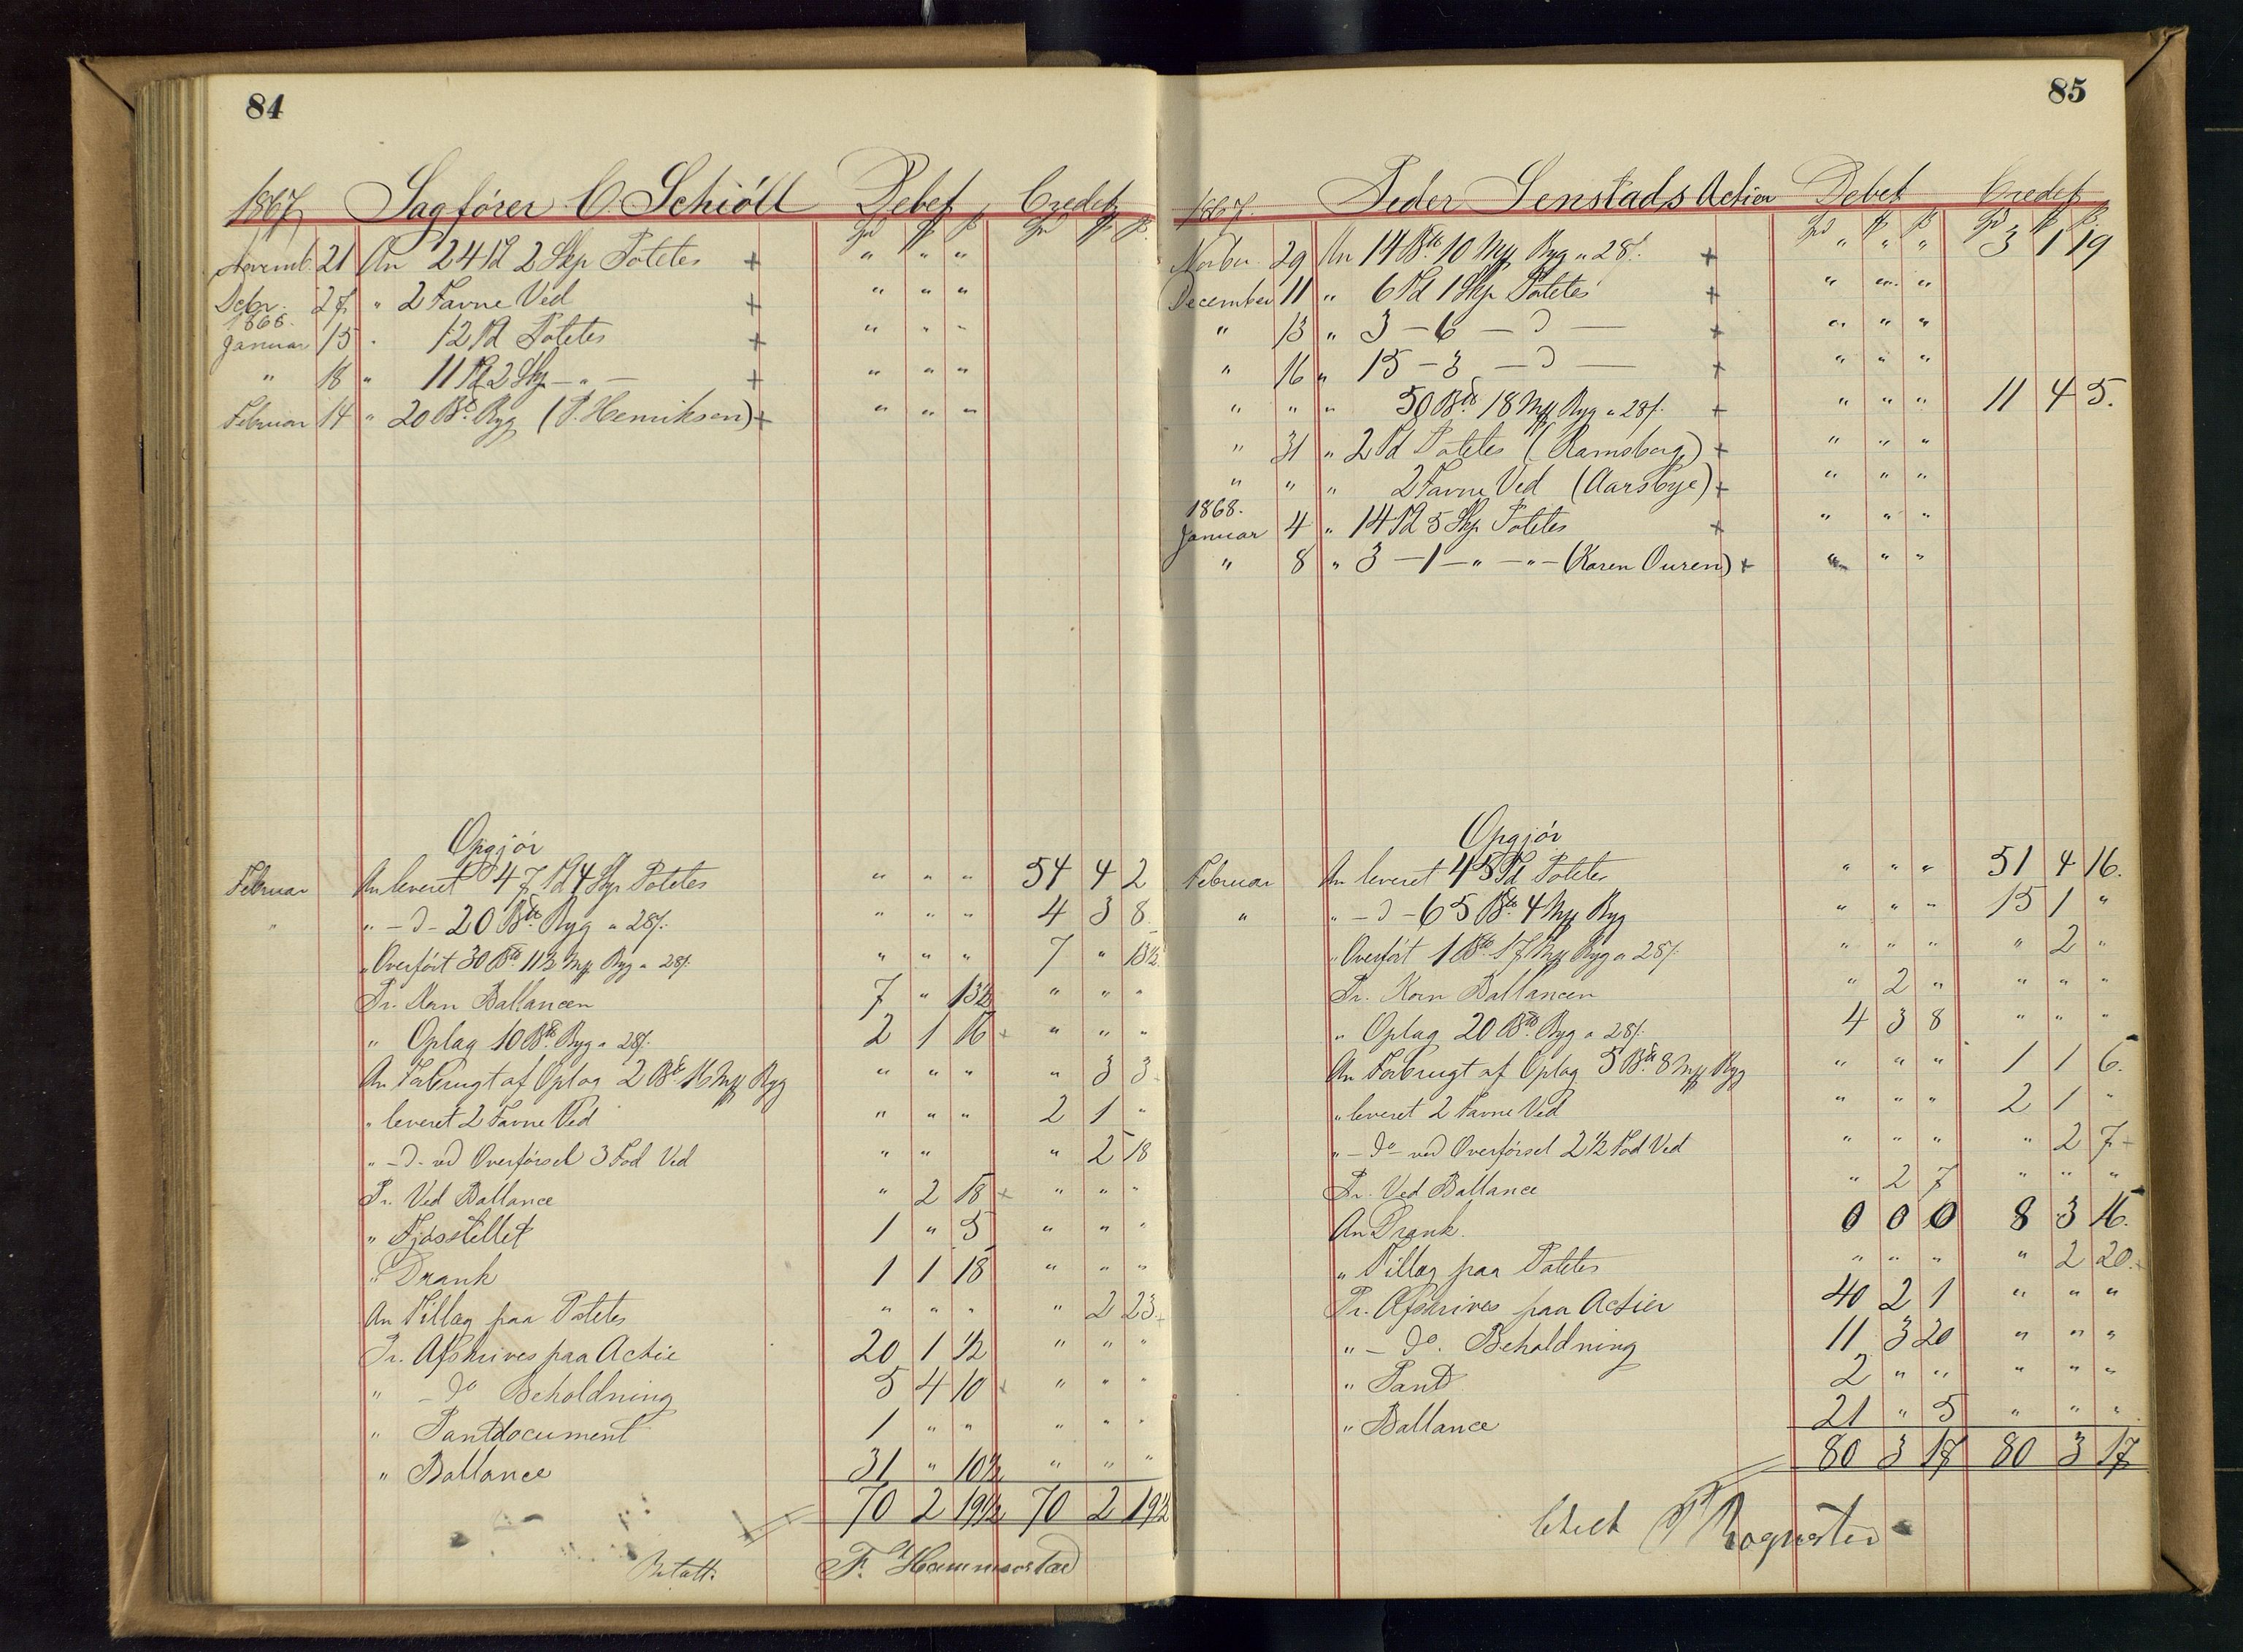 84
1867 Sagfører C. Schiøll Debet Credet
Spd ß Spd ß
Novemb. 21 An 24 Td 2 Skp Potetes + " " "
Decbr. 27 " 2 Favne Ved + " " "
1868.
Januar 15 " 12 Td Potetes + " " "
" 18 " 11 Td 2 Skp — " — + " " "
Februar 14 " 20 B. Byg (P. Henriksen) + " " "
Opgjør
Februar An leveret 47 Td 4 Skp Potetes " " " 54 4 2
" " - D - 20 B. Byg a 28/. " " " 4 3 8
" Overført 30 B. 11½ Byg a 28/. " " " 7 " 13½
Pr. Korn Ballancen 7 " 13½ " " "
" Oplag 10 B. Byg a 28/. 2 1 16 + " " "
An Forbrugt af Oplag 2 B. 16 Byg " " " " 3 3
" leveret 2 Favne Ved " " " 2 1 "
" - D - ved Overførsel 3 Fod Ved " " " 2 18
Pr. Ved Ballance " 2 18 + " " "
" Fjøsstellet 1 " 5 " " "
" Drank 1 1 18 " " "
An Tillæg paa Potetes " " " " 2 23
Pr. Afskrives paa Actie 20 1 ½ " " "
" - Do Beholdning 5 4 10 " " "
" Pantdocument 1 " " " " "
" Ballance 31 " 10½ " " "
70 2 19½ 70 2 19½
Betalt. F. Hammerstad
85
1867. Peder Senstads Actier Debet Credet
Spd ß Spd ß
Novber 29 An 14 B. 10 Byg a 28/. + " " " 3 1 19
December 11 " 6 Td 1 Skp Potetes + " " "
" 13 " 3 — 6 — D — + " " "
" 16 " 15 — 3 — D — + " " "
" " " 50 B. 18 Byg a 28/. + " " " 11 4 5.
" 31 " 2 Td Potetes (Ramsberg) + " " "
" " " 2 Favne Ved (Aarsbye) + " " "
1868.
Januar 4 " 14 Td 5 Skp Potetes + " " "
" 8 " 3 — 1 — " — " — (Karen Ouren) + " " "
Opgjør
Februar An leveret 45 Td Potetes " " " 51 4 16.
" " - D - 65 B. 4 Byg " " " 15 1 "
" Overført 1 B. 17 Byg a 28/. " " " " 2 "
Pr. Korn Ballancen " 2 " " " "
" Oplag 20 B. Byg a 28/. 4 3 8 " " "
An Forbrugt af Oplag 5 B. 8 Byg " " " 1 1 6.
" leveret 2 Favne Ved " " " 2 1 "
" - Do - ved Overførsel 2½ Fod Ved " " " " 2 7
Pr. Ved Ballance " 2 7 " " "
An Drank. 0 0 0 8 3 16.
" Tillæg paa Potetes " " " " 2 20.
Pr. Afskrives paa Actier 40 2 1 " " "
" - Do. Beholdning 11 3 20 " " "
" Pant 2 " " " " "
" Ballance 21 " 5 " " "
80 3 17 80 3 17